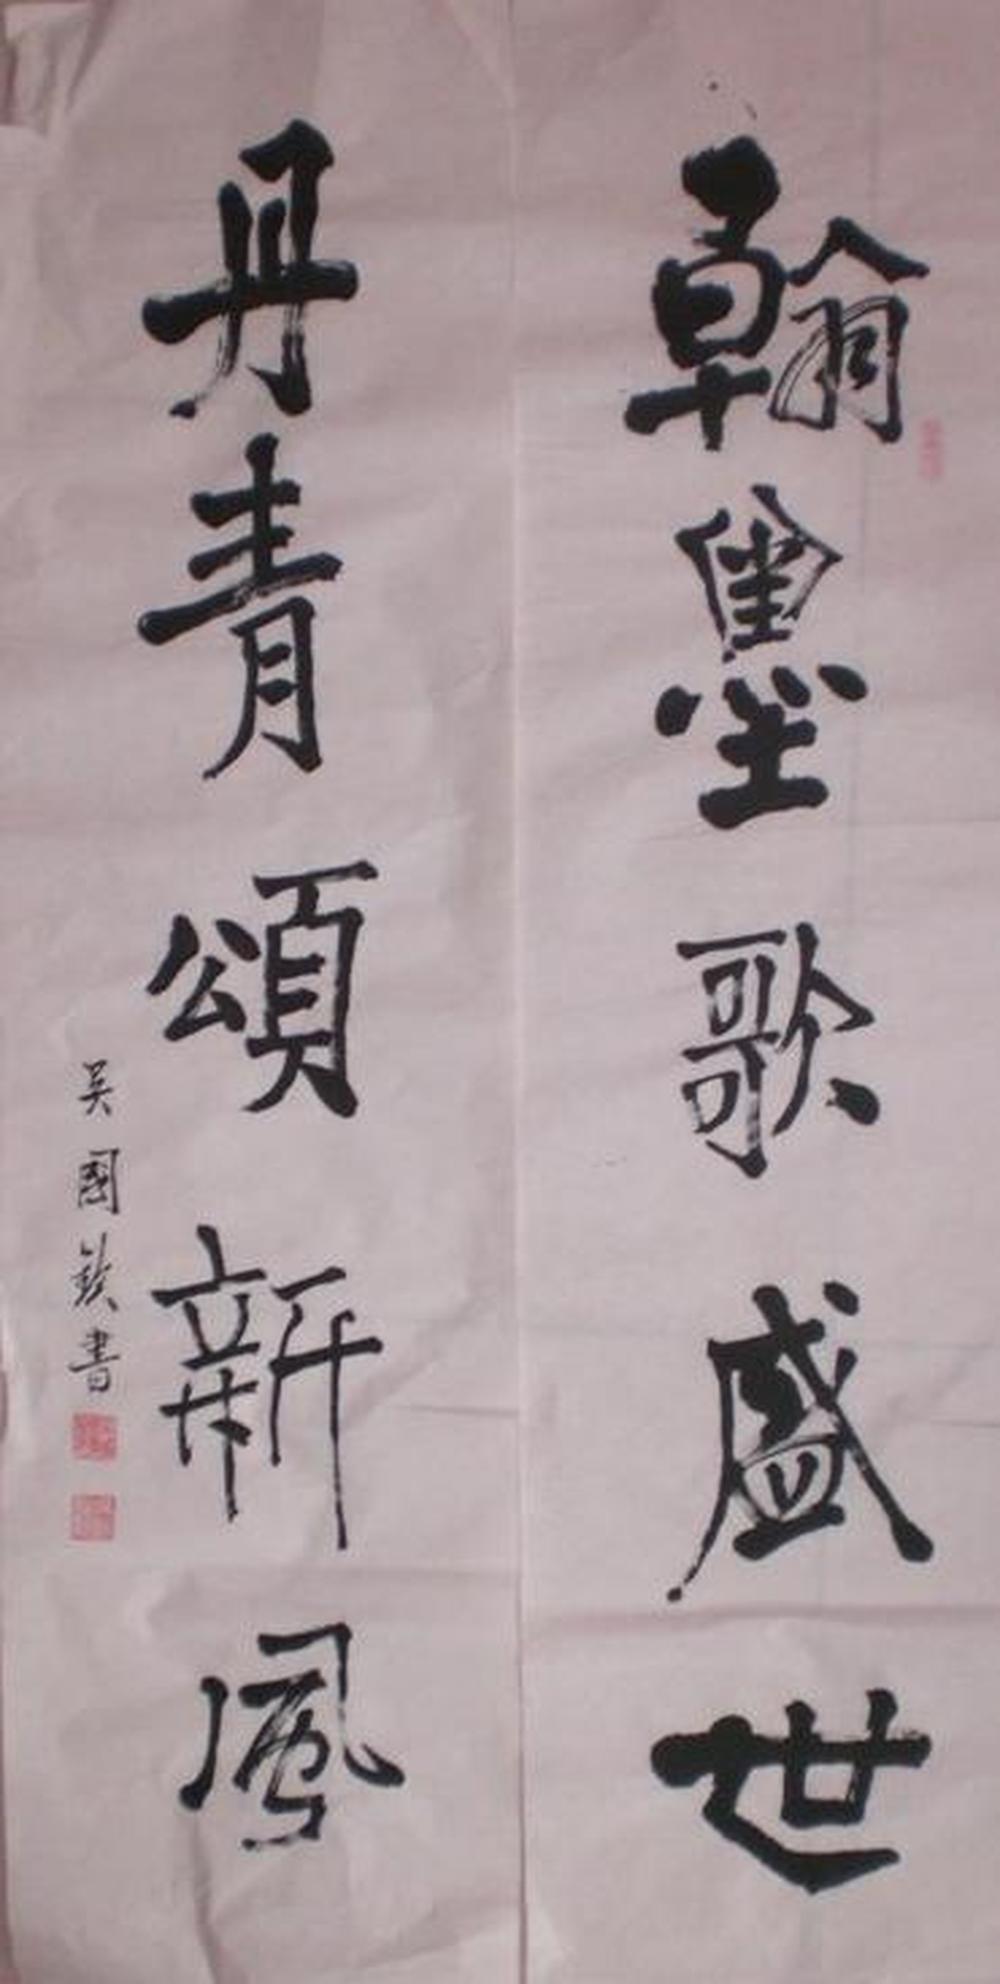 翰墨歌盛世
丹青頌新風
吴國欽書